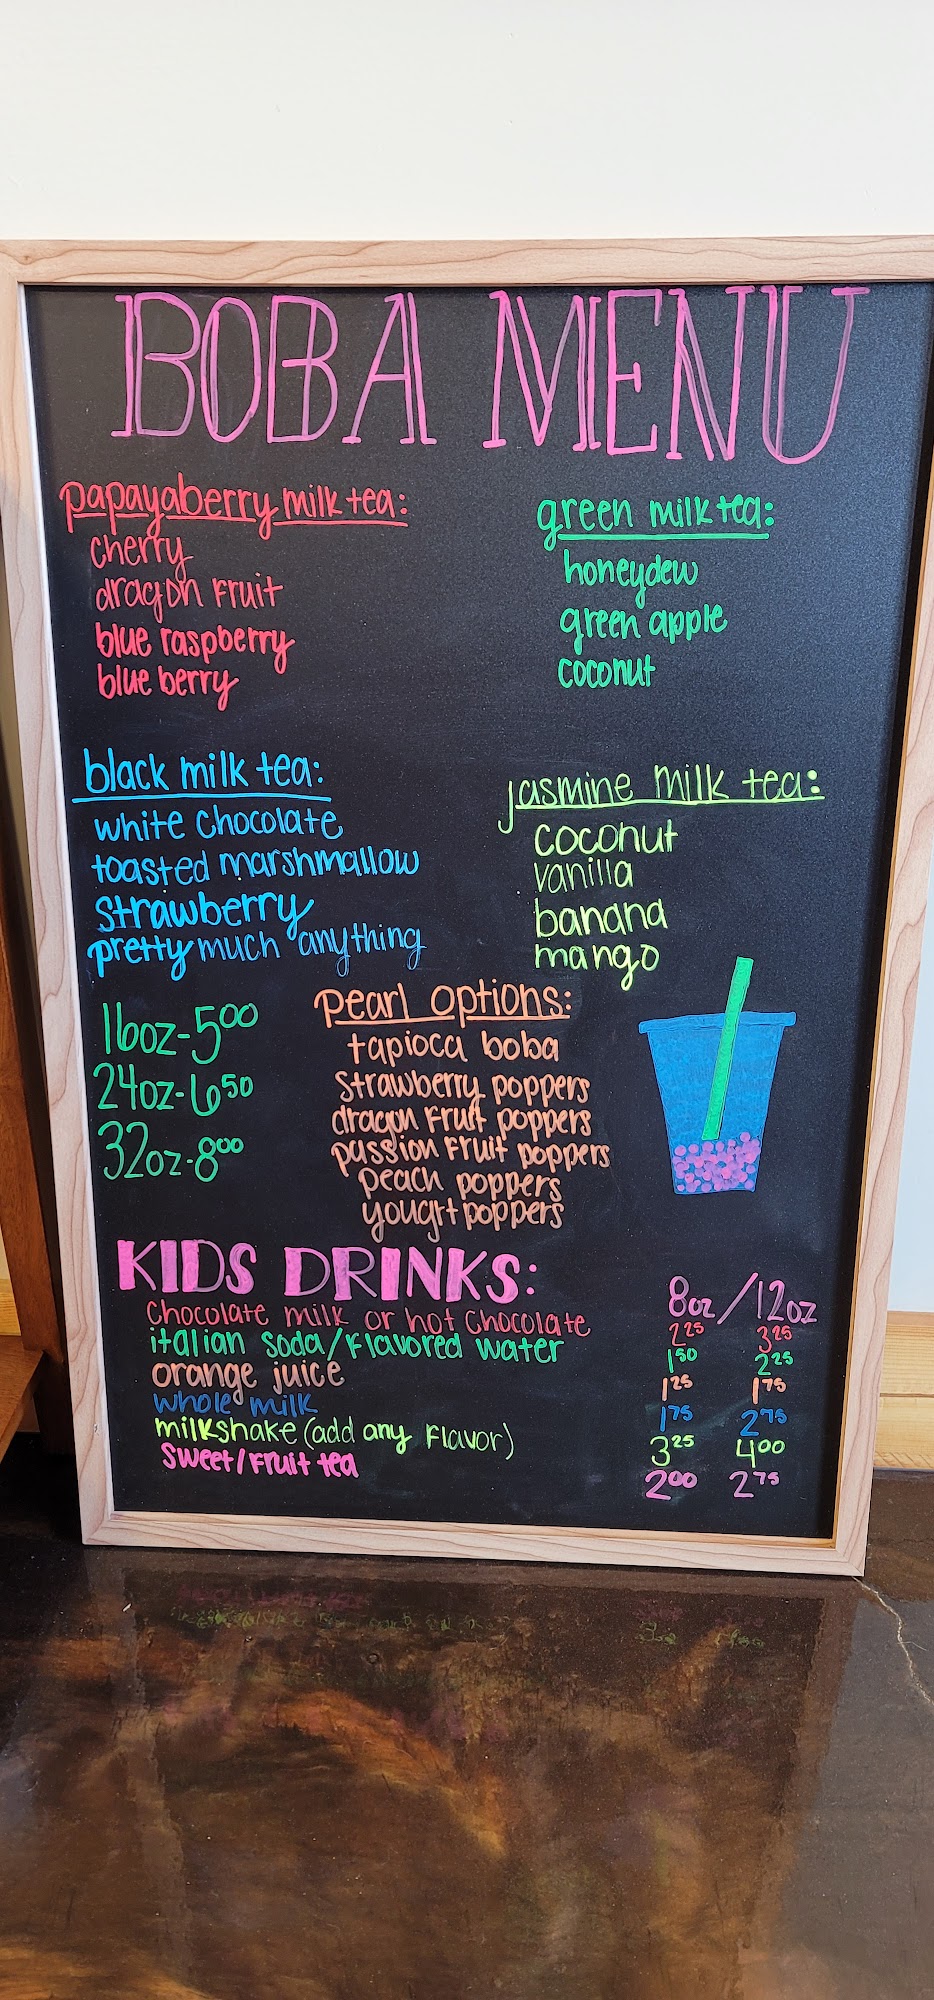 BOBA MENU
papayaberry milk tea:
cherry
dragon Fruit
blue raspberry
blue berry
green milk tea:
honeydew
green apple
coconut
black milk tea:
white chocolate
toasted marshmallow
strawberry
pretty much anything
jasmine milk tea:
coconut
vanilla
banana
mango
16oz-5.00
24oz-6.50
32oz-8.00
pearl options:
tapioca boba
strawberry poppers
dragon Fruit poppers
passion Fruit poppers
peach poppers
yougrt poppers
KIDS DRINKS: 8oz/12oz
chocolate milk or hot chocolate 2.25 3.25
italian soda/Flavored water 1.50 2.25
orange juice 1.25 1.75
whole milk 1.75 2.75
milkshake (add any Flavor) 3.25 4.00
sweet/Fruit tea 2.00 2.75